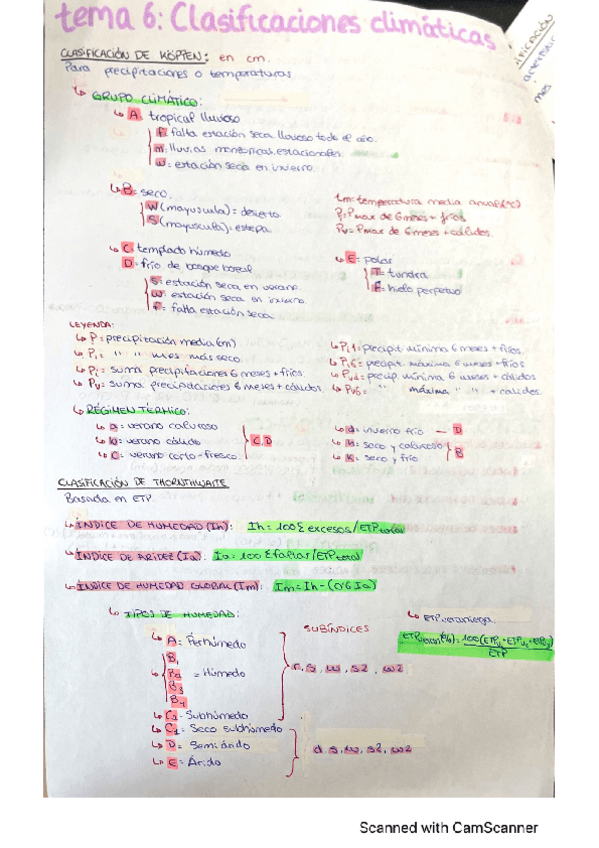 tema 6: Clasificaciones climáticas
CLASIFICACIÓN DE KÖPPEN: en cm.
Para precipitaciones o temperaturas
↳ GRUPO CLIMÁTICO:
↳ A: tropical lluvioso
f: falta estación seca. lluvioso todo el año.
m: lluvias monzónicas, estacionales.
w: estación seca en invierno.
↳ B: seco.
W (mayúscula) = desierto.
S (mayúscula) = estepa.
tm = temperatura media anual (ºC)
Pi = Pmax de 6 meses + fríos
Pv = Pmax de 6 meses + cálidos.
↳ C: templado húmedo
D: frío de bosque boreal
s: estación seca en verano.
w: estación seca en invierno.
f: falta estación seca
↳ E: polar
T: tundra
F: hielo perpetuo
LEYENDA:
↳ P = precipitación media (cm)
↳ P1 = " " mes más seco.
↳ Pi = suma precipitaciones 6 meses + fríos.
↳ Pv = suma precipitaciones 6 meses + cálidos.
↳ Pi1 = precipit mínima 6 meses + fríos.
↳ Pi6 = precipit. máxima 6 meses + fríos
↳ Pv1 = precip mínima 6 meses + cálidos
↳ Pv6 = " máxima " " + cálidos.
↳ RÉGIMEN TÉRMICO:
↳ a = verano caluroso
↳ b = verano cálido
↳ c = verano corto + fresco
C, D
↳ d = invierno frío — D
↳ h = seco y caluroso
↳ k = seco y frío
B
CLASIFICACIÓN DE THORNTHWAITE
Basada en ETP
↳ ÍNDICE DE HUMEDAD (Ih): Ih = 100 Σ excesos / ETP total
↳ ÍNDICE DE ARIDEZ (Ia): Ia = 100 Σ faltas / ETP total
↳ ÍNDICE DE HUMEDAD GLOBAL (Im): Im = Ih - (0'6 Ia)
↳ TIPOS DE HUMEDAD:
SUBÍNDICES
↳ ETP veraniega
↳ A = Perhúmedo
B1
B2
B3
B4
= Húmedo
↳ C2 = Subhúmedo
r, s, w, s2, w2
↳ C1 = Seco subhúmedo
↳ D = Semiárido
↳ E = Árido
d, s, w, s2, w2
Scanned with CamScanner